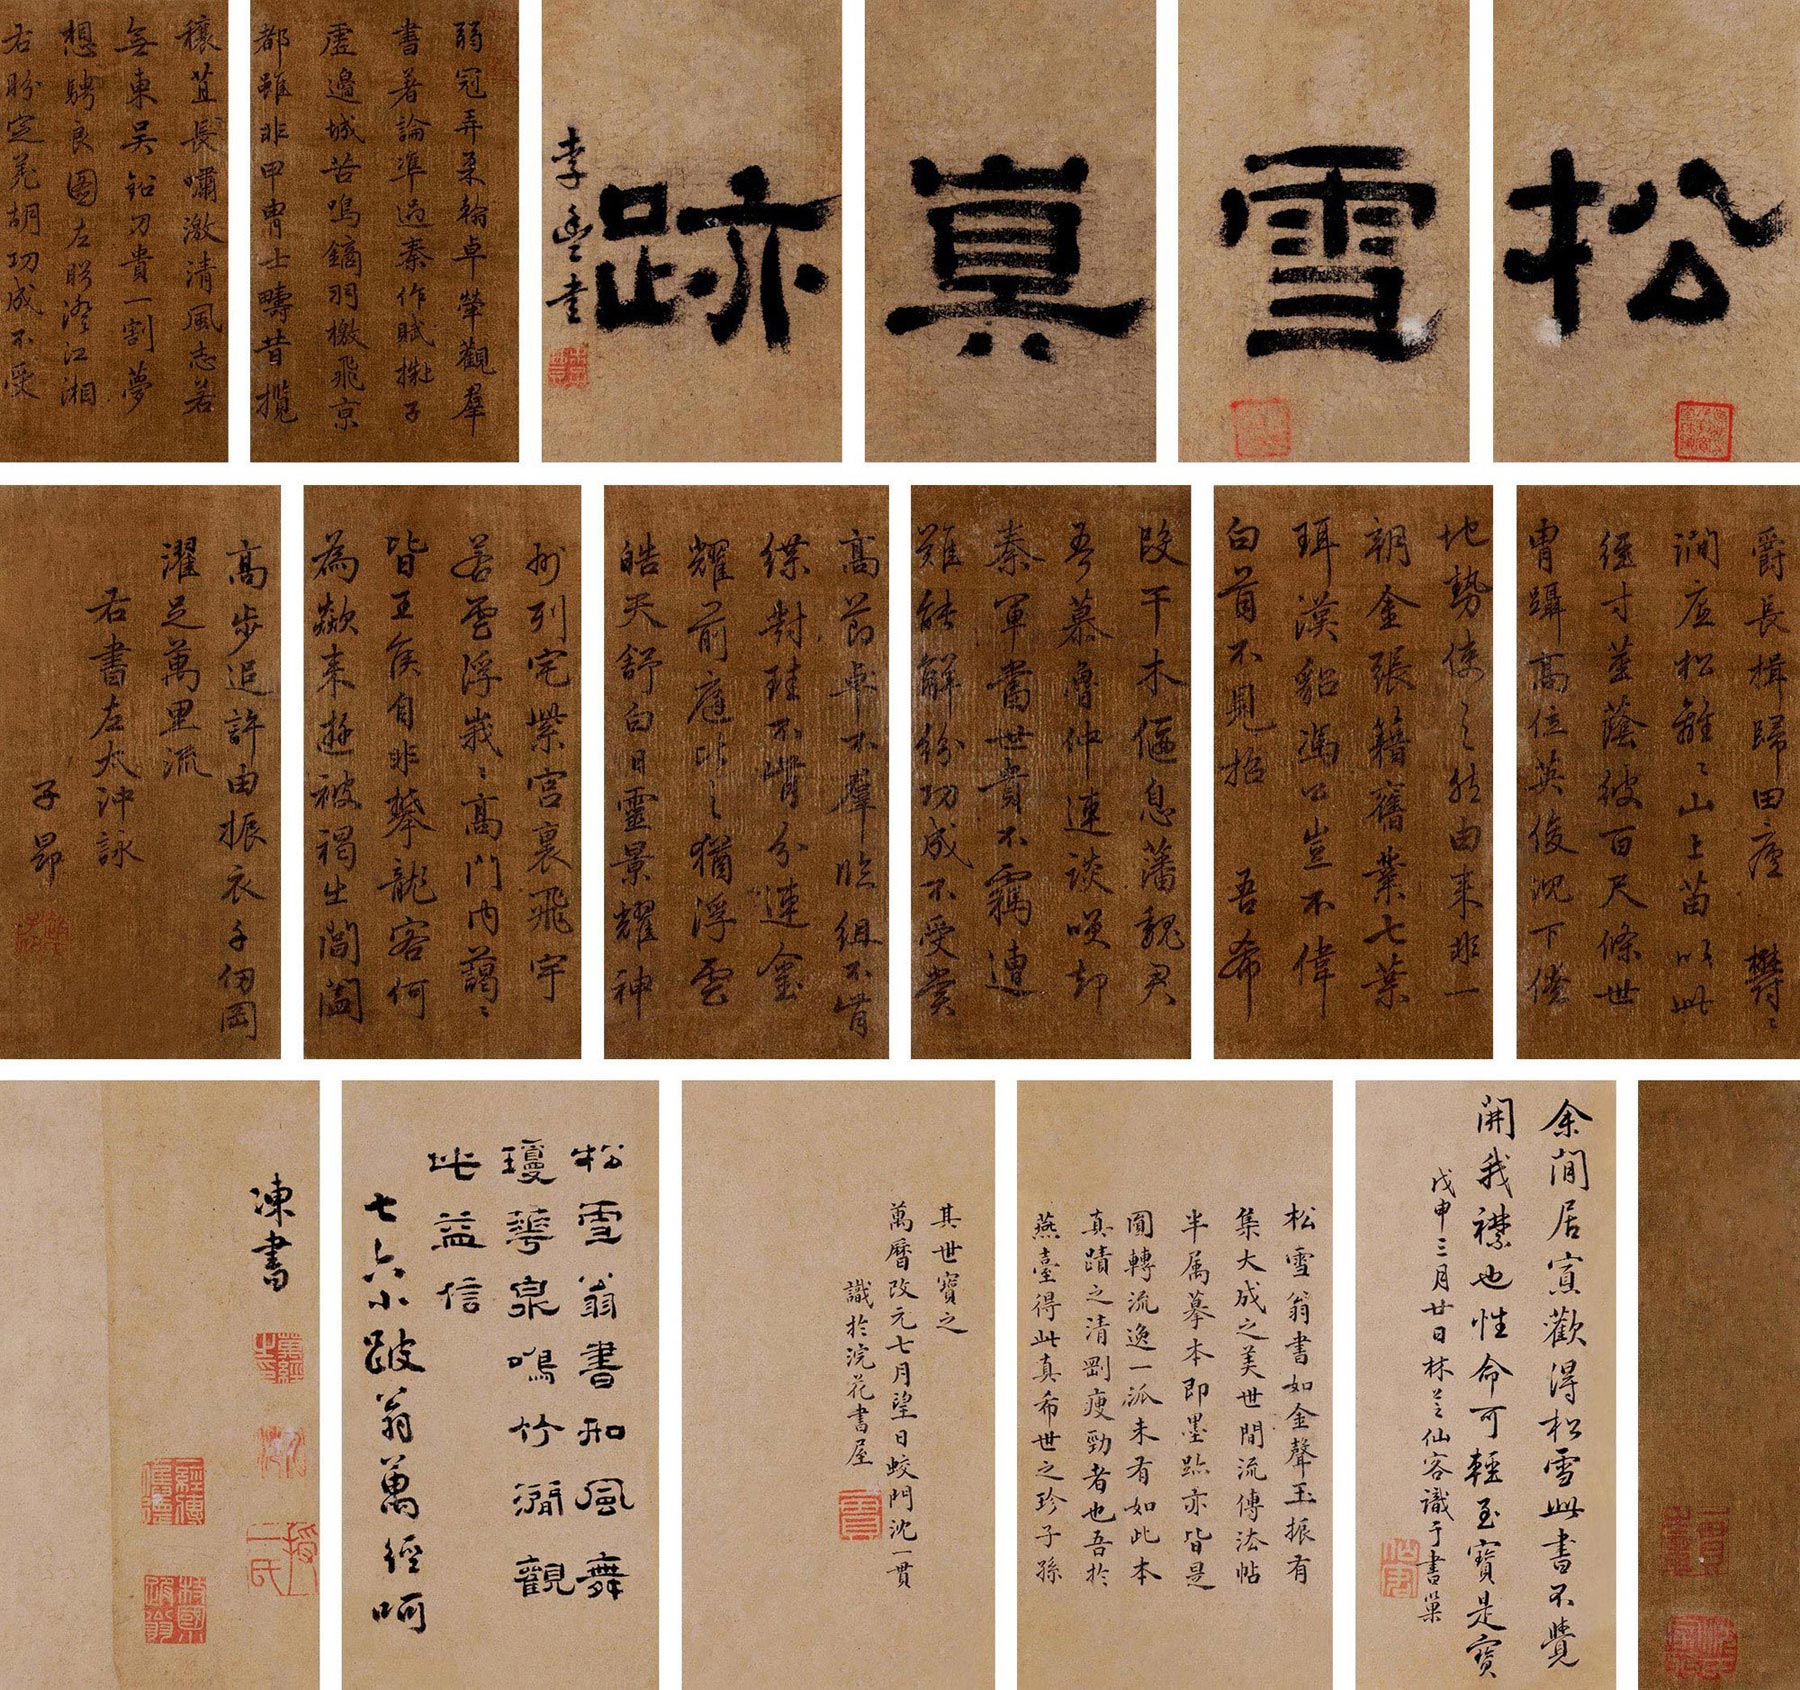 松
雪
真
跡
弱冠弄柔翰卓犖觀羣
書著論準過秦作賦擬子
虛邊城苦鳴鏑羽檄飛京
都雖非甲冑士疇昔攬
穰苴長嘯激清風志若
無東吳鉛刀貴一割夢
想騁良圖左眄澄江湘
右盼定羌胡功成不受
爵長揖歸田廬 鬱〻
澗底松離〻山上苗以此
徑寸莖蔭彼百尺條世
冑躡高位英俊沈下僚
地勢使之然由來非一
朝金張籍舊業七葉
珥漢貂馮公豈不偉
白首不見招 吾希
段干木偃息藩魏君
吾慕魯仲連談笑却
秦軍當世貴不羈遭
難能解紛功成不受賞
高節卓不羣臨組不肯
緤對珪不肯分連璽
耀前庭比之猶浮雲
皓天舒白日靈景耀神
州列宅紫宮裏飛宇
若雲浮峩〻高門內藹〻
皆王侯自非攀龍客何
為欻來遊被褐出閶闔
高步追許由振衣千仞岡
濯足萬里流
右書左太沖詠
子昂
余閒居寡歡得松雪此書不覺
開我襟也性命可輕至寶是寶
戊申三月廿日林芝仙客識于書巢
松雪翁書如金聲玉振有
集大成之美世間流傳法帖
半属摹本即墨跡亦皆是
圓轉流逸一派未有如此本
真蹟之清剛瘦勁者也吾於
燕臺得此真希世之珍子孫
其世寶之
萬曆改元七月望日蛟門沈一貫
識於浣花書屋
松雪翁書和風舞
瓊華泉鳴竹澗觀
此益信
七六小跛翁萬經呵
凍書